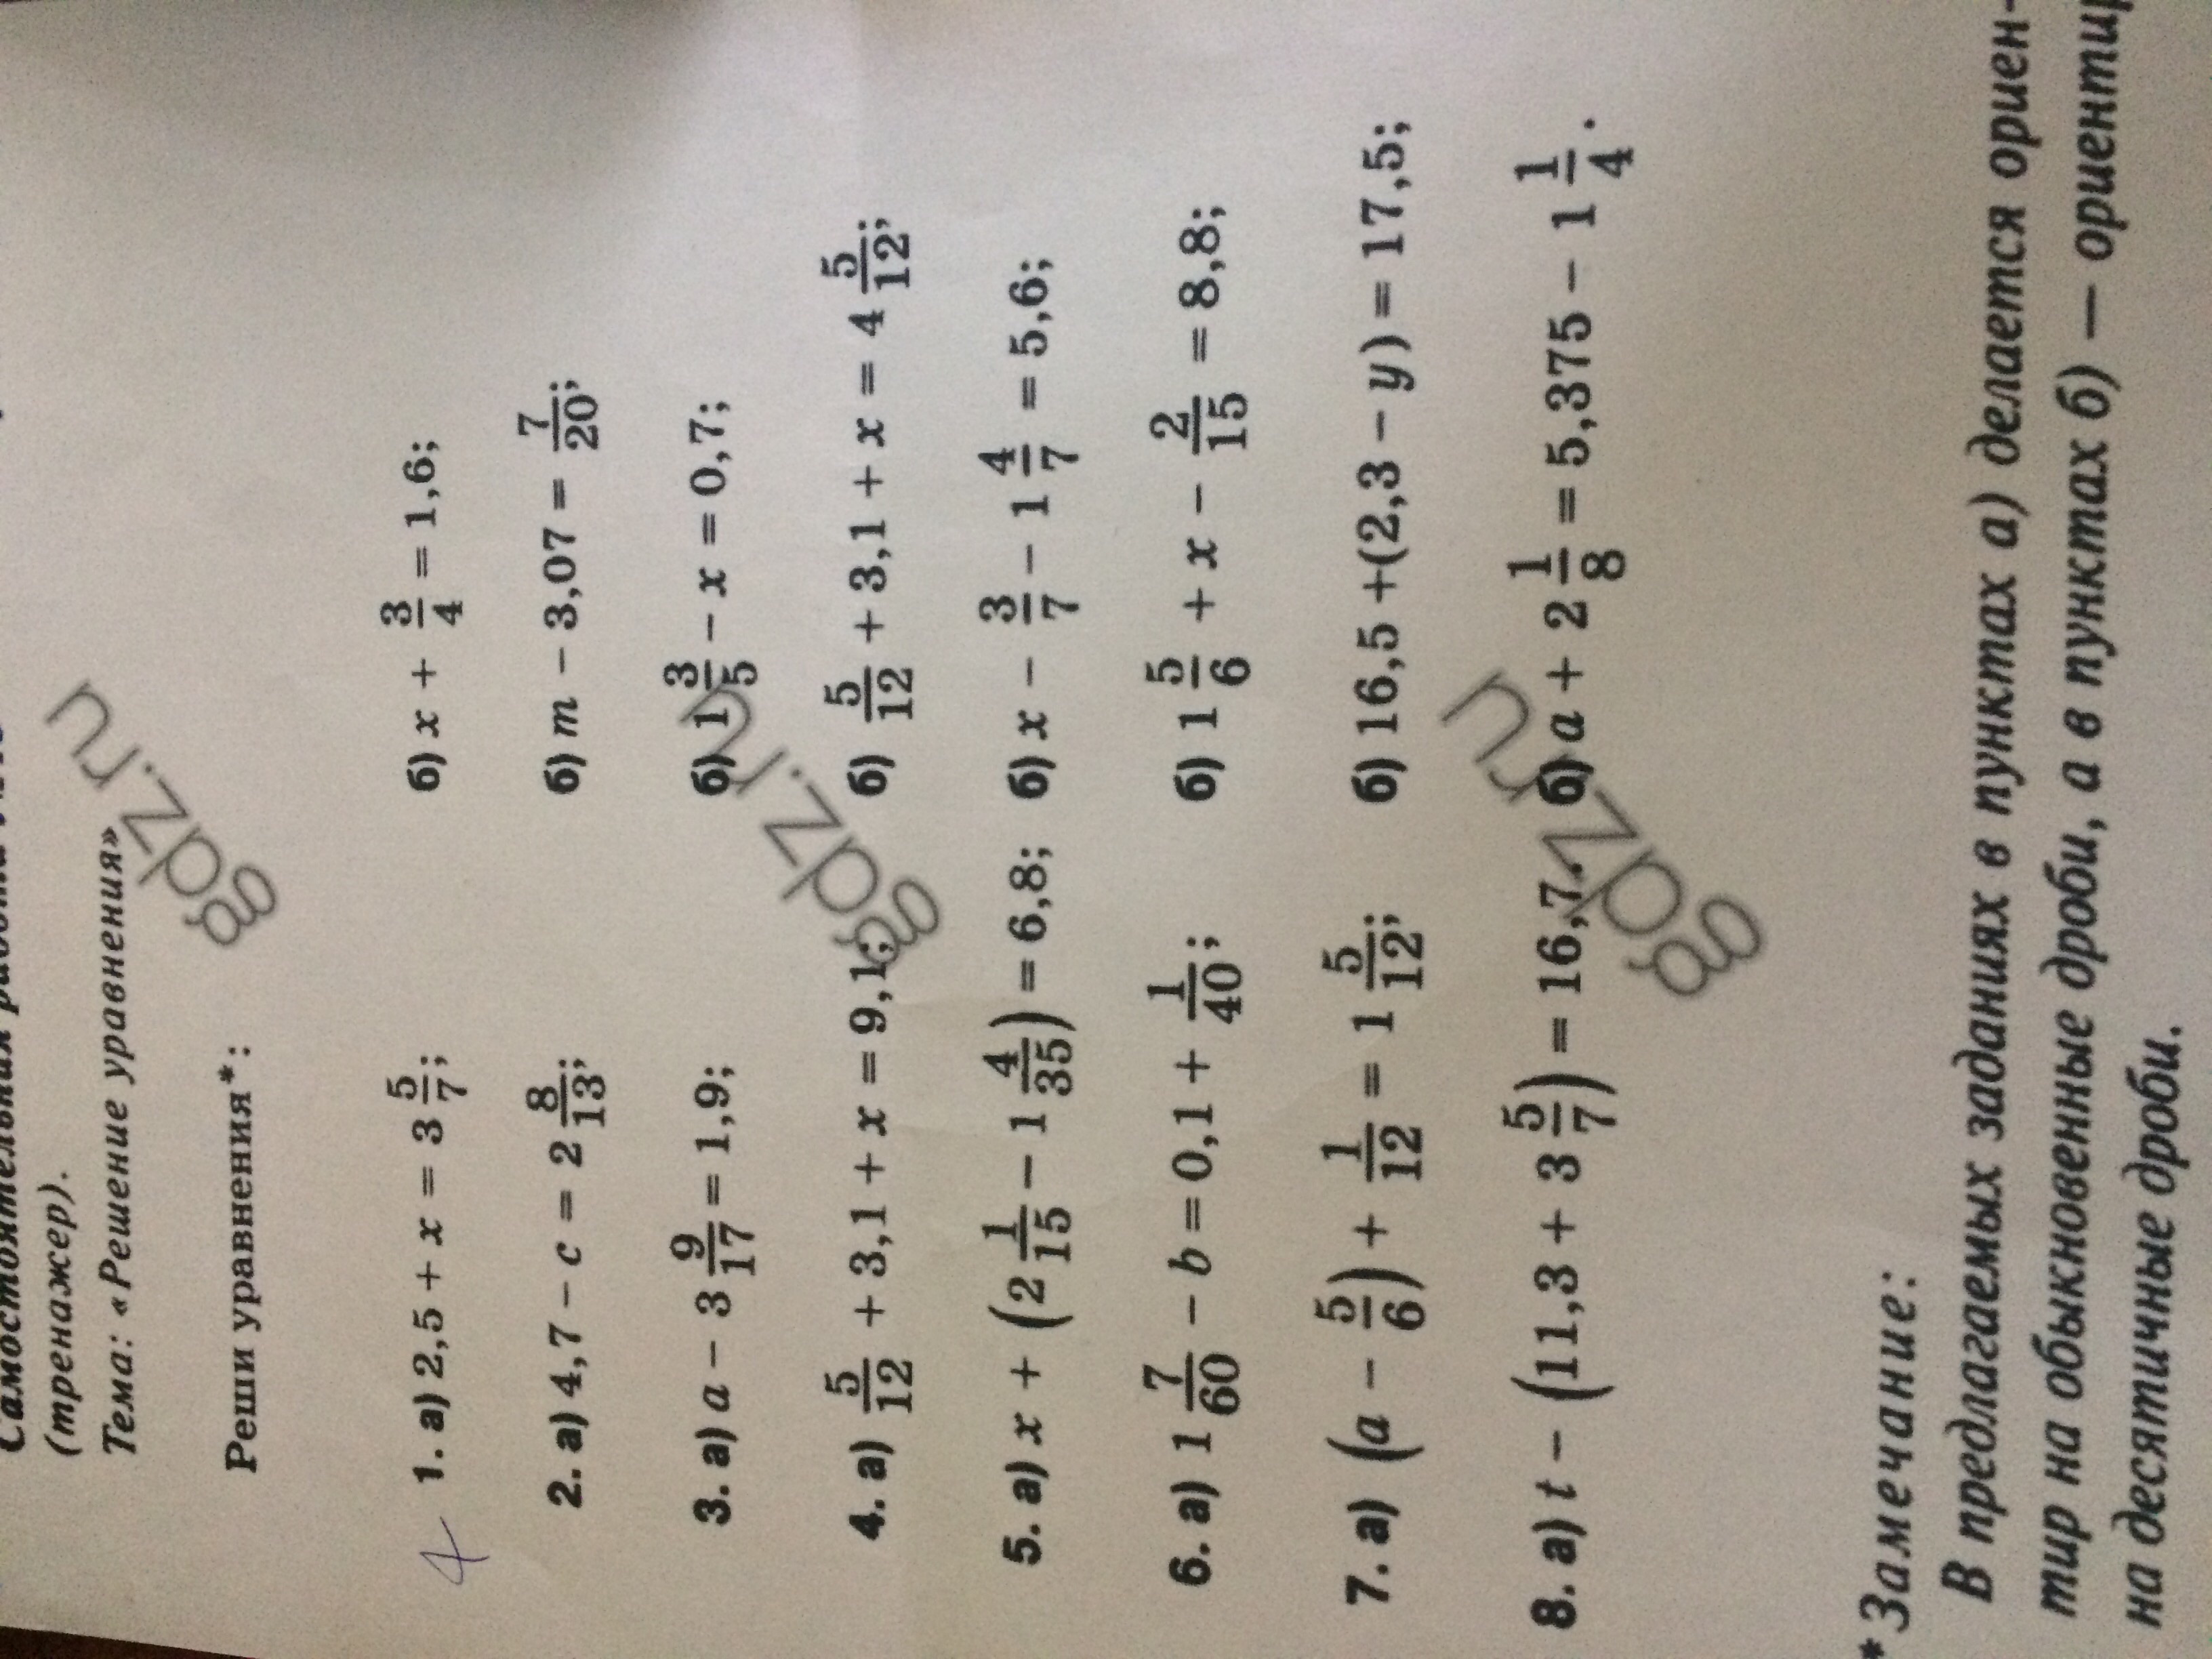 Самостоятельная работа
(тренажер).
Тема: «Решение уравнения»
Реши уравнения*:
4 1. а) 2,5 + x = 3 5/7; б) x + 3/4 = 1,6;
2. а) 4,7 − c = 2 8/13; б) m − 3,07 = 7/20;
3. а) a − 3 9/17 = 1,9; б) 1 3/5 − x = 0,7;
4. а) 5/12 + 3,1 + x = 9,1; б) 5/12 + 3,1 + x = 4 5/12;
5. а) x + (2 1/15 − 1 4/35) = 6,8; б) x − 3/7 − 1 4/7 = 5,6;
6. а) 1 7/60 − b = 0,1 + 1/40; б) 1 5/6 + x − 2/15 = 8,8;
7. а) (a − 5/6) + 1/12 = 1 5/12; б) 16,5 +(2,3 − y) = 17,5;
8. а) t − (11,3 + 3 5/7) = 16,7; б) a + 2 1/8 = 5,375 − 1 1/4.
*Замечание:
В предлагаемых заданиях в пунктах а) делается ориен-
тир на обыкновенные дроби, а в пунктах б) — ориентир
на десятичные дроби.
gdz.ru
gdz.ru
gdz.ru